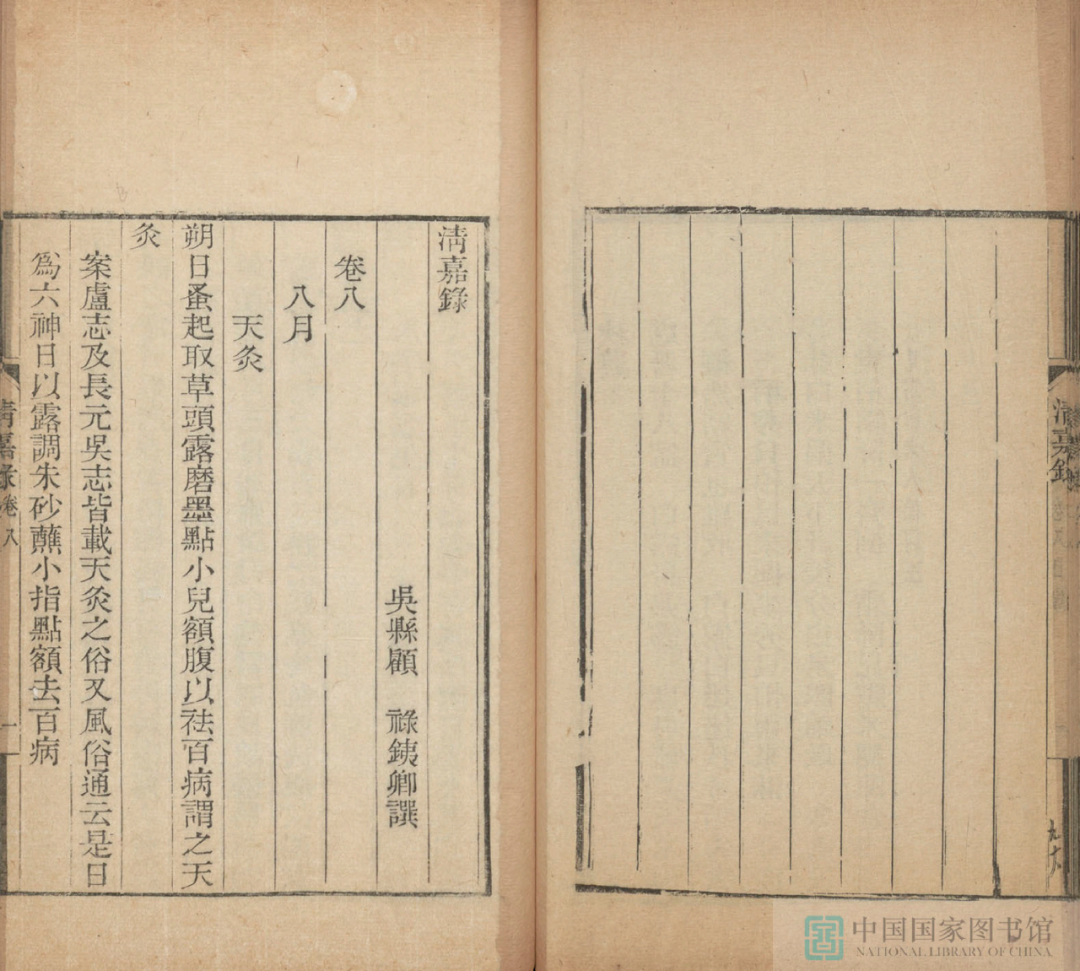 清嘉錄
清嘉錄
卷八
吳縣顧　祿鉄卿譔
八月
天灸
朔日蚤起取草頭露磨墨點小兒額腹以祛百病謂之天
灸
案盧志及長元吳志皆載天灸之俗又風俗通云是日
爲六神日以露調朱砂蘸小指點額去百病
清嘉錄 卷八
一
中国国家图书馆
NATIONAL LIBRARY OF CHINA